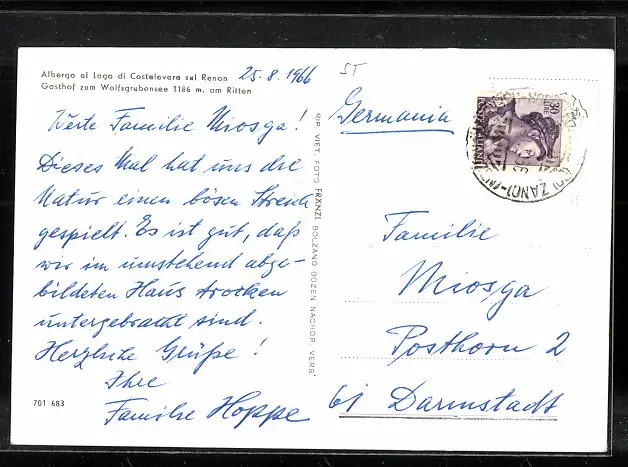 Albergo al Lago di Costalovara sul Renon
Gasthof zum Wolfsgrubensee 1186 m. am Ritten
25.8.1966
Werte Familie Miosga!
Dieses Mal hat uns die
Natur einen bösen Streich
gespielt. Es ist gut, daß
wir im umstehend abge-
bildeten Haus trocken
untergebracht sind.
Herzliche Grüße!
Ihre
Familie Hoppe
701 683
RIP. VIET. FOTO FRÄNZL BOLZANO BOZEN NACHDR. VERB.
ST
Germania
30
POSTE ITALIANE
BOLZANO
Familie
Miosga
Posthorn 2
61 Darmstadt